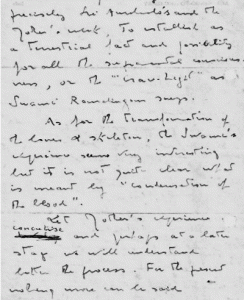 precisely Sri Aurobindo's and the
Mother's work, to establish as
a terrestrial fact and possibility
for all the supramental conscious-
ness, or the "Grace-Light" as
Swami Ramalingam says.
As for the transformation of
the bones & skeleton, the Swami's
experience seems very interesting
but it is not quite clear what
is meant by "condensation of
the blood".
Let Mother's experience
concretise
and perhaps at a later
stage we will understand
better the process. For the present
nothing more can be said